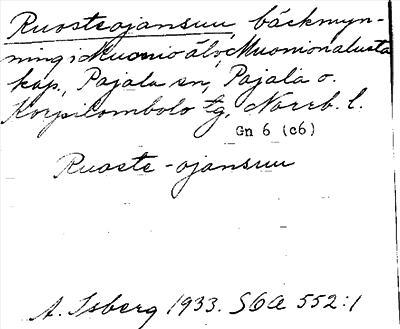 Ruosteojansuu, bäckmyn-
ning i Muonio älv, Muonionalusta
kap., Pajala sn, Pajala o.
Korpilombolo tg, Norrb. l.
Gn 6 (c6)
Ruoste-ojansuu
A. Isberg 1933. SOA 552:1